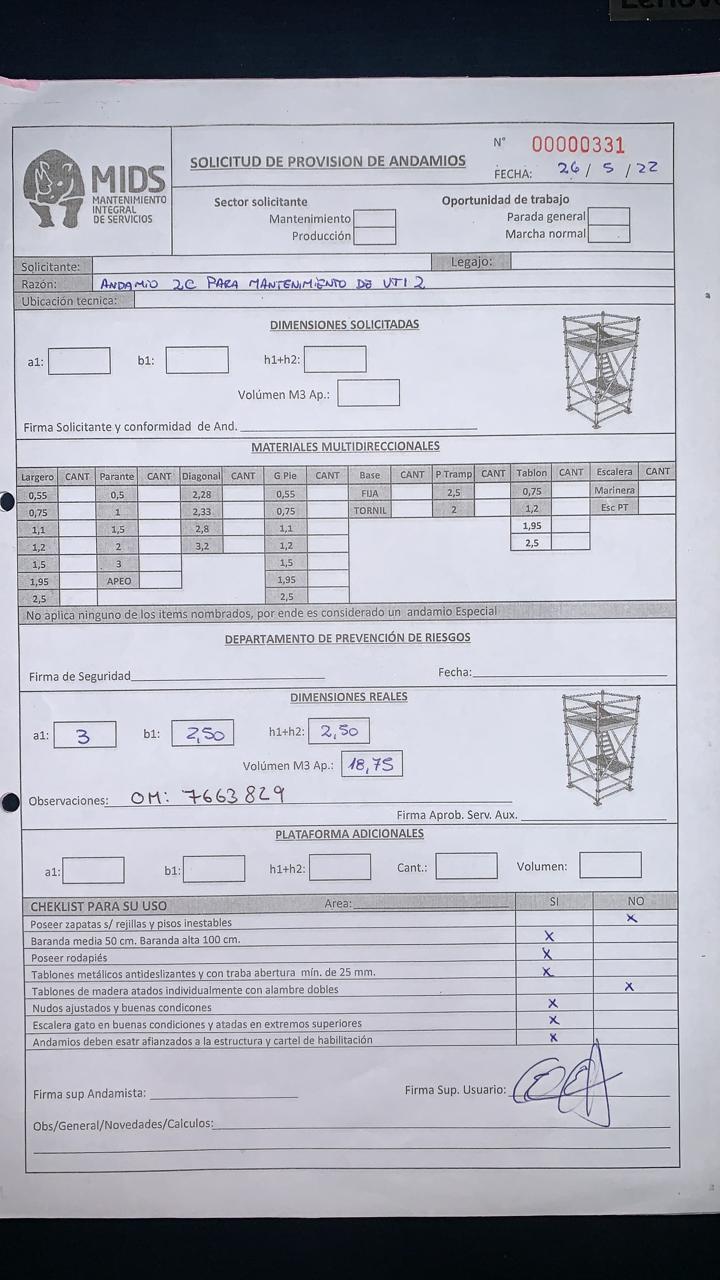 Lenovo
MIDS
MANTENIMIENTO
INTEGRAL
DE SERVICIOS
SOLICITUD DE PROVISION DE ANDAMIOS
N° 00000331
FECHA: 26 / 5 / 22
Sector solicitante
Mantenimiento
Producción
Oportunidad de trabajo
Parada general
Marcha normal
Solicitante: Legajo:
Razón: ANDAMIO 2C PARA MANTENIMIENTO DE UTI 2
Ubicación tecnica:
DIMENSIONES SOLICITADAS
a1: b1: h1+h2:
Volúmen M3 Ap.:
Firma Solicitante y conformidad de And.
MATERIALES MULTIDIRECCIONALES
Largero CANT Parante CANT Diagonal CANT G Pie CANT Base CANT P Tramp CANT Tablon CANT Escalera CANT
0,55 0,5 2,28 0,55 FIJA 2,5 0,75 Marinera
0,75 1 2,33 0,75 TORNIL 2 1,2 Esc PT
1,1 1,5 2,8 1,1 1,95
1,2 2 3,2 1,2 2,5
1,5 3 1,5
1,95 APEO 1,95
2,5 2,5
No aplica ninguno de los items nombrados, por ende es considerado un andamio Especial
DEPARTAMENTO DE PREVENCIÓN DE RIESGOS
Firma de Seguridad Fecha:
DIMENSIONES REALES
a1: 3 b1: 2,50 h1+h2: 2,50
Volúmen M3 Ap.: 18,75
Observaciones: OM: 7663829
Firma Aprob. Serv. Aux.
PLATAFORMA ADICIONALES
a1: b1: h1+h2: Cant.: Volumen:
CHEKLIST PARA SU USO Area: SI NO
Poseer zapatas s/ rejillas y pisos inestables X
Baranda media 50 cm. Baranda alta 100 cm. X
Poseer rodapiés X
Tablones metálicos antideslizantes y con traba abertura mín. de 25 mm. X
Tablones de madera atados individualmente con alambre dobles X
Nudos ajustados y buenas condicones X
Escalera gato en buenas condiciones y atadas en extremos superiores X
Andamios deben esatr afianzados a la estructura y cartel de habilitación X
Firma sup Andamista: Firma Sup. Usuario:
Obs/General/Novedades/Calculos: